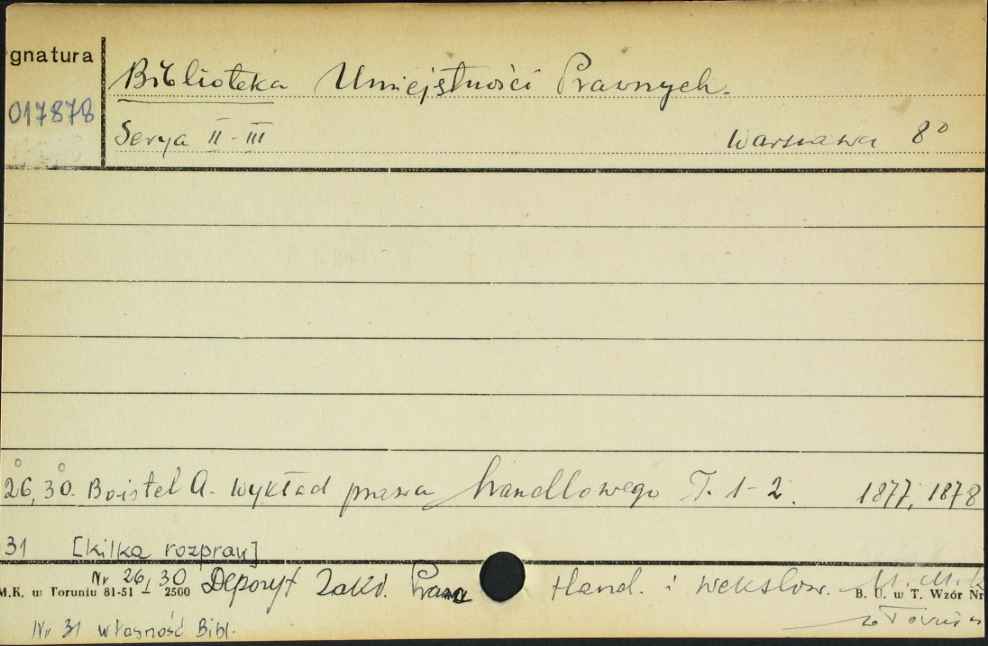 gnatura
Biblioteka Umiejętności Prawnych.
017878
Serya II-III Warszawa 8°
26, 30. Boistel A. Wykład prawa handlowego T. 1-2. 1877, 1878
31 [kilka rozpraw]
Nr 26 i 30 Depozyt Zakł. Prawa Hand. i Wekslow. U.M.K.
M.K. w Toruniu 81-51 2500 B. U. w T. Wzór Nr
w Toruniu
Nr 31 własność Bibl.